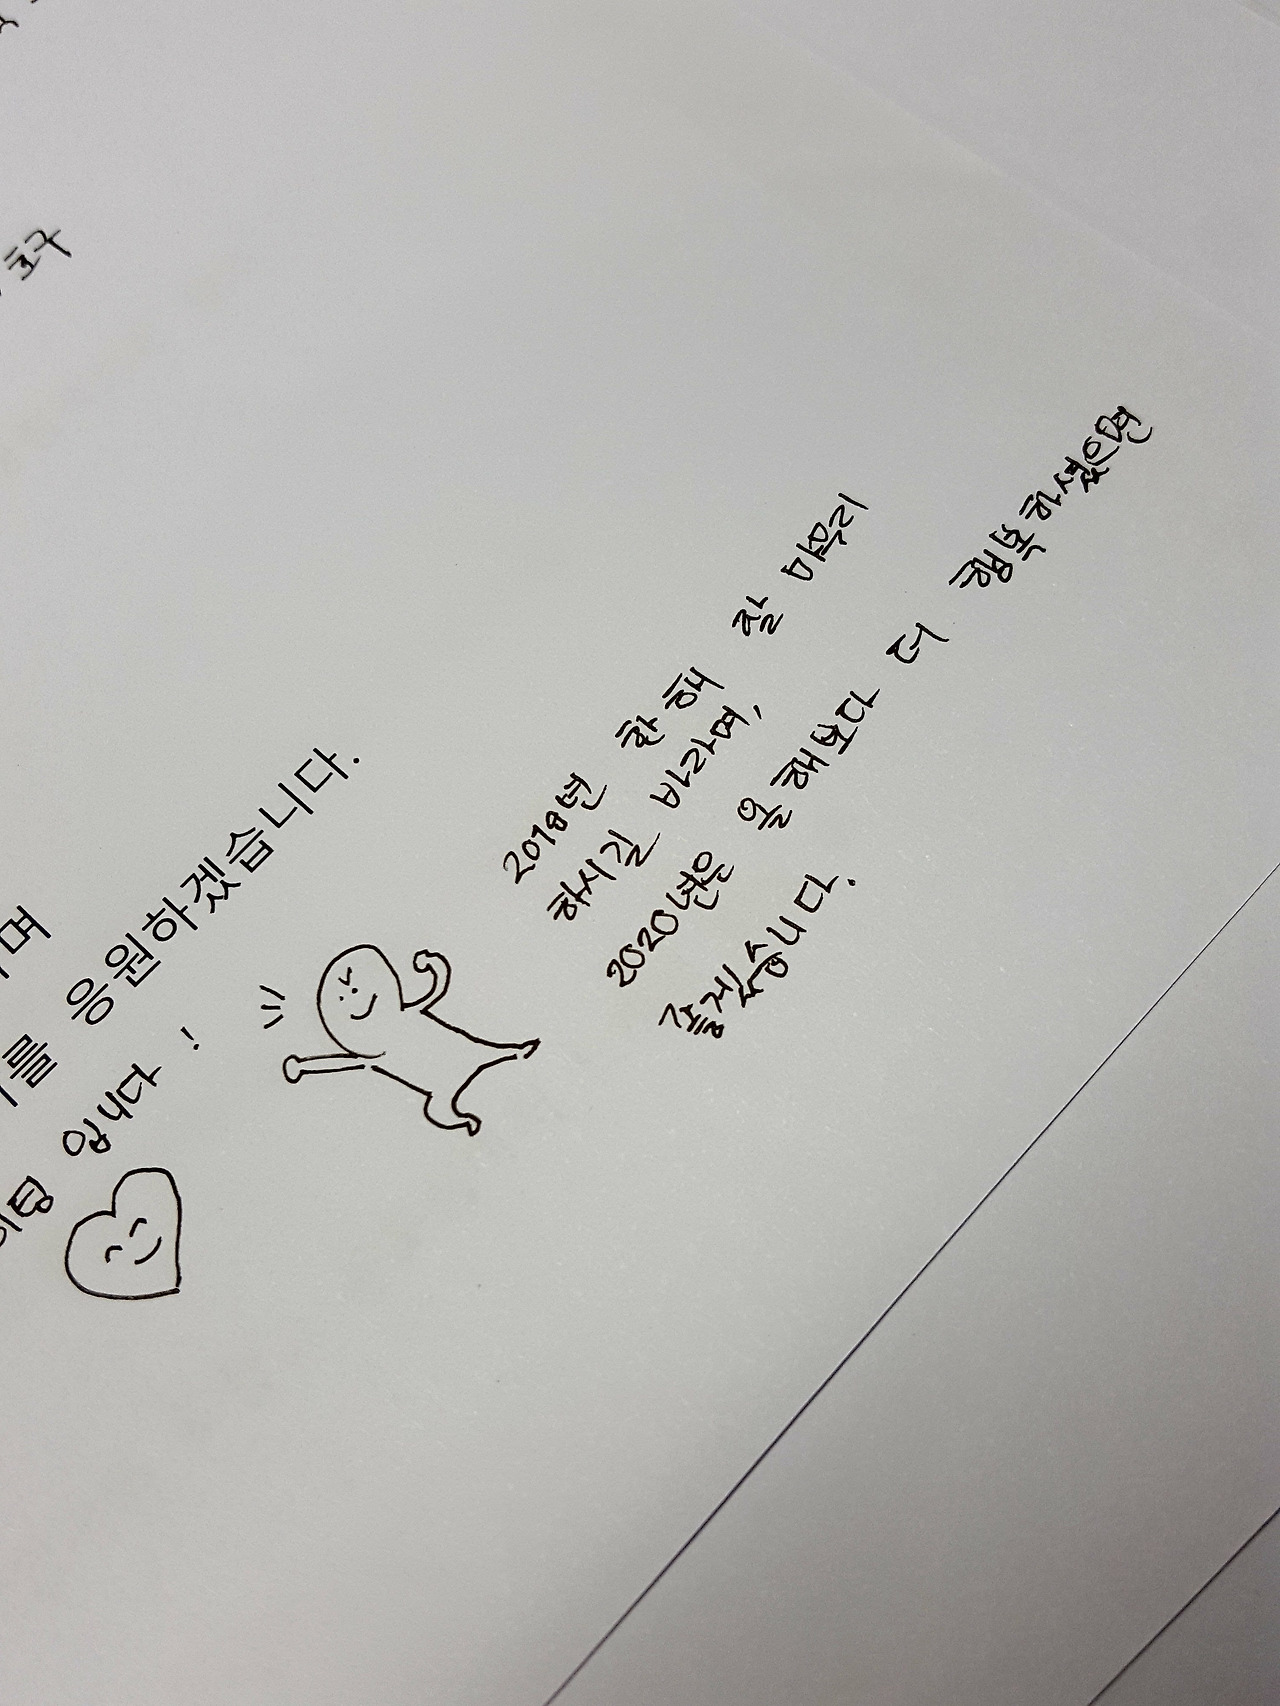 호구
며
를 응원하겠습니다.
입니다!
2019년 한 해 잘 마무리
하시길 바라며,
2020년은 올 해보다 더 행복하셨으면
좋겠습니다.